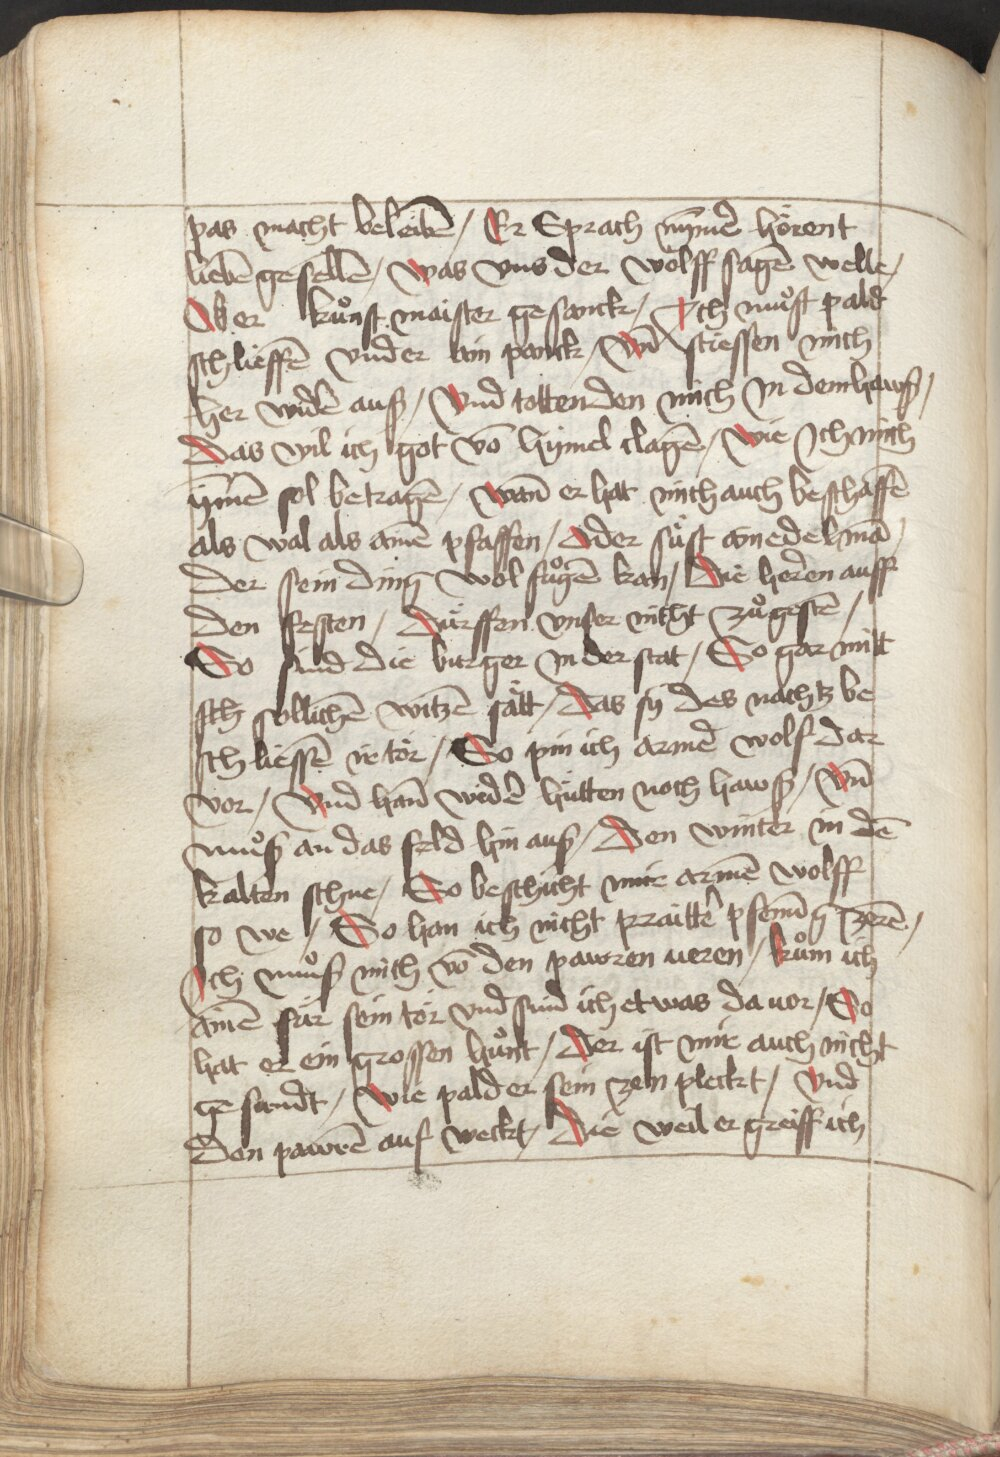 pas macht beleibē / Er Sprach nym̄er hörent
liebē gesellē / was vns der wolff sagē welle /
Ob er kůnst maister gesanck / Ich můst pald
schlieffē vnder ain panck / Vn̄ stiessen mich
her widē auß / Vnd tottenden mich In dem hawß /
Das wil ich got vō hymel clagē / wie Ich mich
ym̄e sol betragē / wan̄ er hat mich auch beschaffē
als wal als ainē pfaffen / Oder süst ain edelmā /
der sein ding wol fůgē kan / Die heren auff
den festen / Dürffen vnser nicht zůgestē /
So sind die burger In der stat / So gar mitt
sch sollichē witzē sätt / Das sy des nachtz be
schliessē ir tör / So pin ich armē wolf dar
vor / Vnd han̄ wedē hütten noch hawß / Vn̄
můß an das feld hin auß / Den winter in dē
kalten schne / So beschicht mir armē wolff
so we / So han ich nicht praittē pfenīg zerē /
Ich můß mich vō den pawren neren / kům ich
ainē für sein tör vnd find ich etwas da vor / So
hat er ein grossen hůnt / Der ist mir auch nicht
gesandt / Wie pald er sein zen pleckt / Vnd
Den pawrē auf weckt / Die weil ergreiff ich